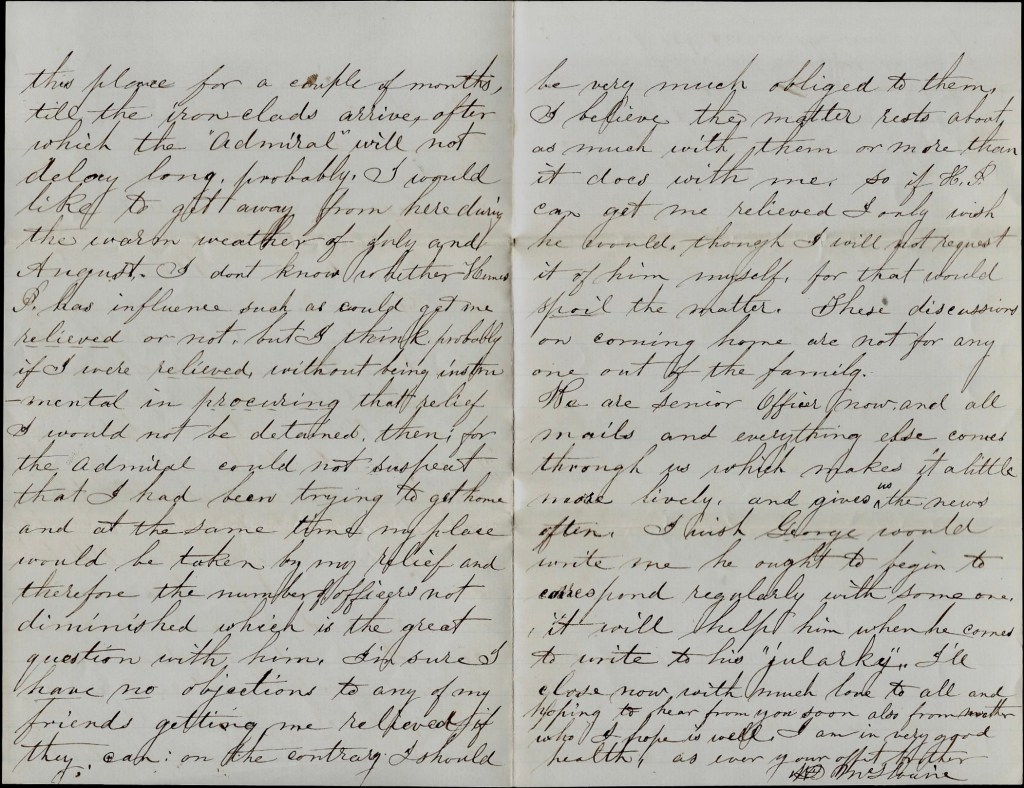 this place for a couple of months,
till the iron-clads arrive, after
which the "Admiral" will not
delay long, probably. I would
like to get away from here during
the warm weather of July and
August. I dont know whether Homes
P. has influence such as could get me
relieved or not, but I think probably
if I were relieved, without being instru
-mental in procuring that relief
I would not be detained, then; for
the Admiral could not suspect
that I had been trying to get home
and at the same time my place
would be taken by my relief and
therefore the number of officers not
diminished which is the great
question with him. I'm sure I
have no objections to any of my
friends getting me relieved if
they can: on the contrary I should
be very much obliged to them,
I believe the matter rests about
as much with them or more than
it does with me. So if H. P.
can get me relieved I only wish
he would, though I will not request
it of him myself, for that would
spoil the matter. These discussions
on coming home are not for any
one out of the family.
We are Senior Officer now, and all
mails and everything else comes
through us which makes it a little
more lively, and gives us the news
often. I wish George would
write me he ought to begin to
correspond regularly with some one,
it will help him when he comes
to write to his "jularky". I'll
close now, with much love to all and
hoping to hear from you soon also from mother
who I hope is well. I am in very good
health, as ever your afft. brother